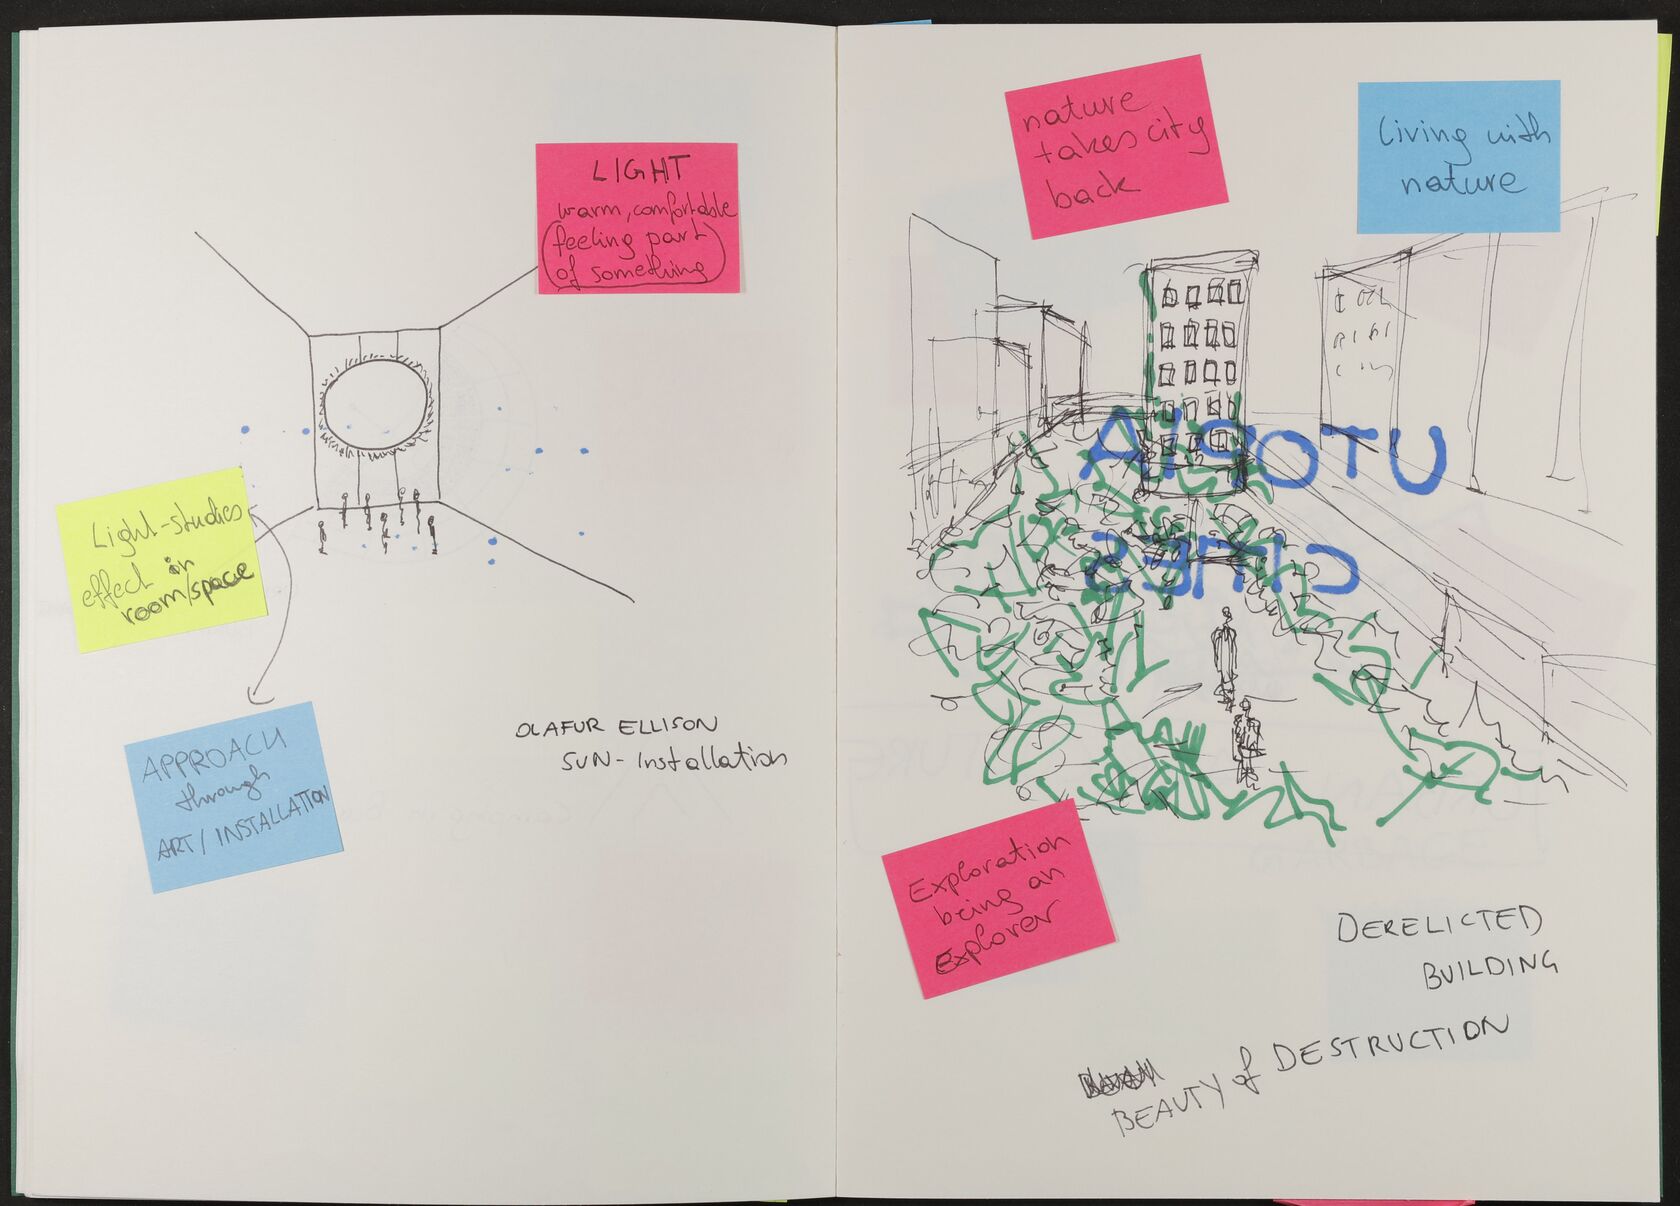 LIGHT
warm, comfortable
(feeling part
of something)
Light-studies
effect in
room/space
APPROACH
through
ART/INSTALLATION
OLAFUR ELLISON
SUN-Installation
nature
takes city
back
living with
nature
UTOPIA
CITIES
Exploration
being an
explorer
DERELICTED
BUILDING
BEAUTY of DESTRUCTION